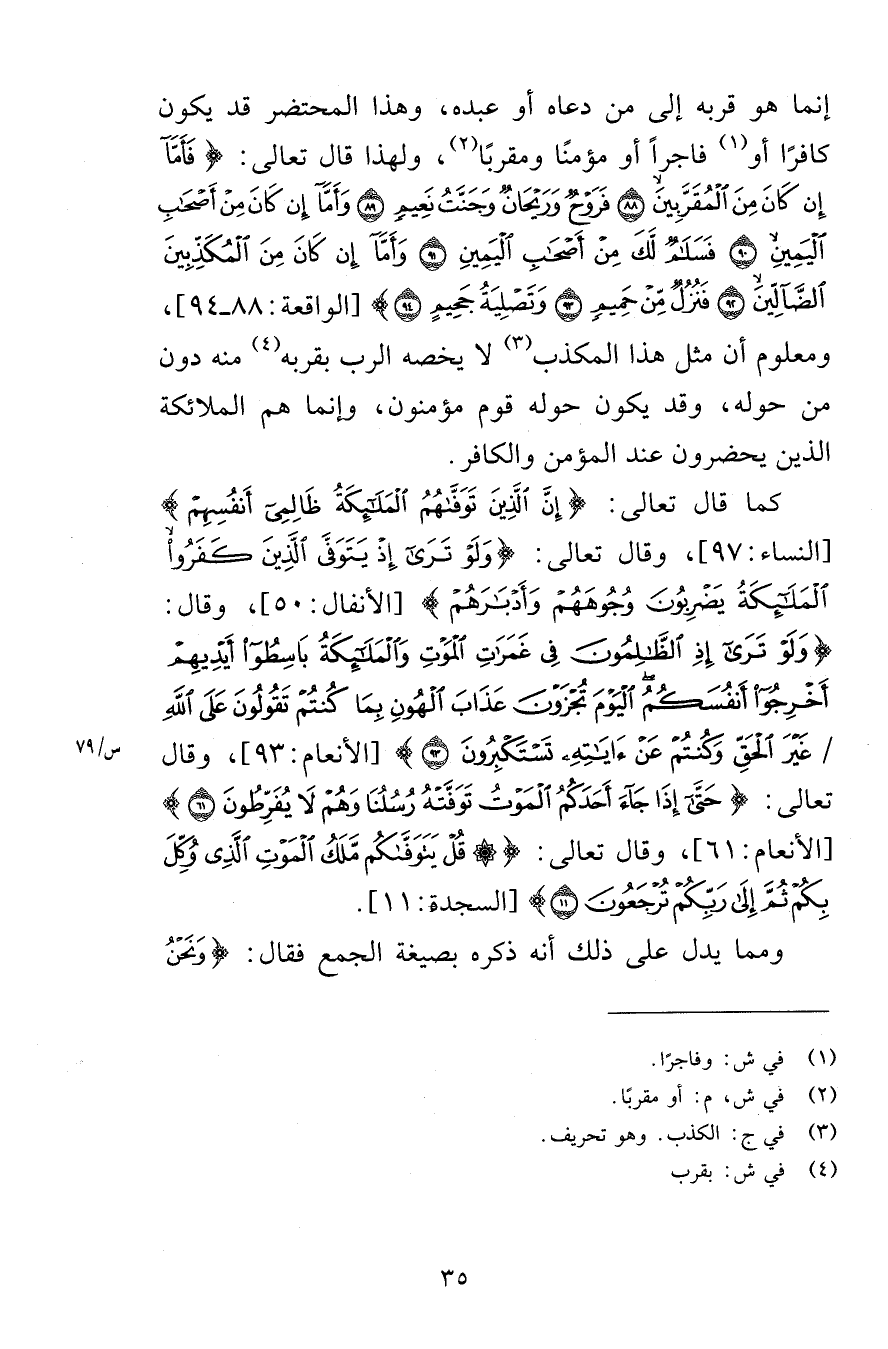 إنما هو قربه إلى من دعاه أو عبده، وهذا المحتضر قد يكون
كافرًا أو(١) فاجراً أو مؤمنًا ومقربًا(٢)، ولهذا قال تعالى: ﴿ فَأَمَّآ
إِن كَانَ مِنَ ٱلْمُقَرَّبِينَۙ ۝٨٨ فَرَوْحٌ وَرَيْحَانٌ وَجَنَّتُ نَعِيمٍ ۝٨٩ وَأَمَّآ إِن كَانَ مِنْ أَصْحَٰبِ
ٱلْيَمِينِۙ ۝٩٠ فَسَلَٰمٌ لَّكَ مِنْ أَصْحَٰبِ ٱلْيَمِينِ ۝٩١ وَأَمَّآ إِن كَانَ مِنَ ٱلْمُكَذِّبِينَ
ٱلضَّآلِّينَۙ ۝٩٢ فَنُزُلٌ مِّنْ حَمِيمٍ ۝٩٣ وَتَصْلِيَةُ جَحِيمٍ ۝٩٤ ﴾ [الواقعة: ٨٨ـ٩٤]،
ومعلوم أن مثل هذا المكذب(٣) لا يخصه الرب بقربه(٤) منه دون
من حوله، وقد يكون حوله قوم مؤمنون، وإنما هم الملائكة
الذين يحضرون عند المؤمن والكافر.
كما قال تعالى: ﴿ إِنَّ ٱلَّذِينَ تَوَفَّىٰهُمُ ٱلْمَلَٰٓئِكَةُ ظَالِمِىٓ أَنفُسِهِمْ ﴾
[النساء: ٩٧]، وقال تعالى: ﴿وَلَوْ تَرَىٰٓ إِذْ يَتَوَفَّى ٱلَّذِينَ كَفَرُواْۙ
ٱلْمَلَٰٓئِكَةُ يَضْرِبُونَ وُجُوهَهُمْ وَأَدْبَٰرَهُمْ ﴾ [الأنفال: ٥٠]، وقال:
﴿وَلَوْ تَرَىٰٓ إِذِ ٱلظَّٰلِمُونَ فِى غَمَرَٰتِ ٱلْمَوْتِ وَٱلْمَلَٰٓئِكَةُ بَاسِطُوٓاْ أَيْدِيهِمْ
أَخْرِجُوٓاْ أَنفُسَكُمُۖ ٱلْيَوْمَ تُجْزَوْنَ عَذَابَ ٱلْهُونِ بِمَا كُنتُمْ تَقُولُونَ عَلَى ٱللَّهِ
/ غَيْرَ ٱلْحَقِّ وَكُنتُمْ عَنْ ءَايَٰتِهِۦ تَسْتَكْبِرُونَ ۝٩٣ ﴾ [الأنعام: ٩٣]، وقال
س/٧٩
تعالى: ﴿ حَتَّىٰٓ إِذَا جَآءَ أَحَدَكُمُ ٱلْمَوْتُ تَوَفَّتْهُ رُسُلُنَا وَهُمْ لَا يُفَرِّطُونَ ۝٦١ ﴾
[الأنعام: ٦١]، وقال تعالى: ﴿ ۞ قُلْ يَتَوَفَّىٰكُم مَّلَكُ ٱلْمَوْتِ ٱلَّذِى وُكِّلَ
بِكُمْ ثُمَّ إِلَىٰ رَبِّكُمْ تُرْجَعُونَ ۝١١ ﴾ [السجدة: ١١].
ومما يدل على ذلك أنه ذكره بصيغة الجمع فقال: ﴿وَنَحْنُ
(١) في ش: وفاجرًا.
(٢) في ش، م: أو مقربًا.
(٣) في ج: الكذب. وهو تحريف.
(٤) في ش: بقرب
٣٥